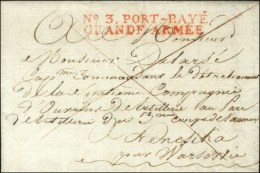 No 3. PORT-PAYÉ
GRANDE-ARMÉE
A Monsieur
Monsieur Delarsé
Capne Commandant le détachement
de la Compagnie
d'Ouvriers d'artillerie au Parc
d'artillerie du corps de l'armée
par Warsovie